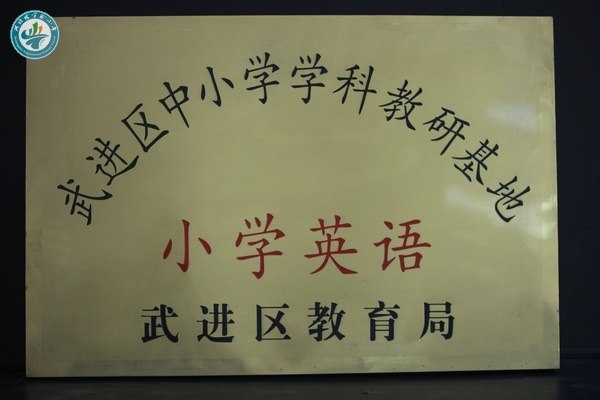 武进区中小学学科教研基地
小学英语
武进区教育局